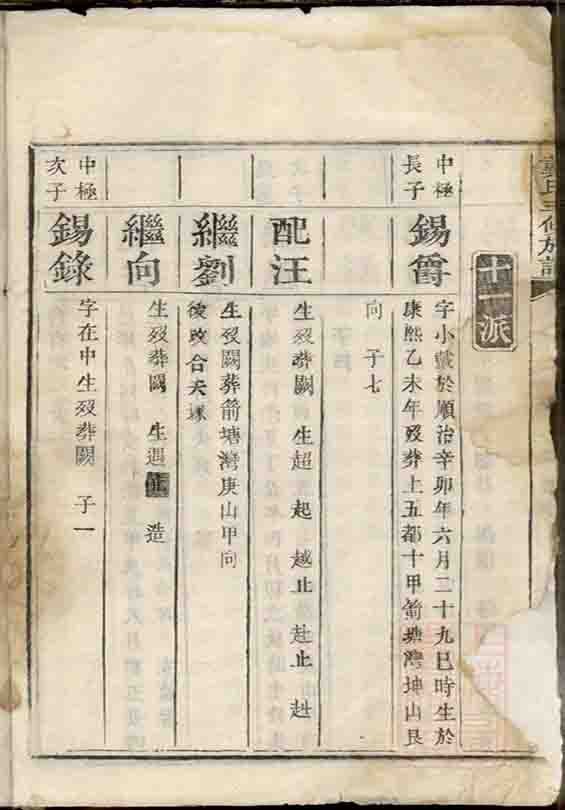 氏三修族譜
十一派
中極
長子
錫爵
字小
於順治辛卯年六月二十九巳時生於
康熙乙未年歿葬上五都十甲箭塘灣坤山艮
向 子七
配汪
生歿葬闕 生超 起 越止 赴止 赳
繼劉
生歿闕葬箭塘灣庚山甲向
後改合夫
繼向
生歿葬闕 生遇止 造
中極
次子
錫錄
字在中生歿葬闕 子一